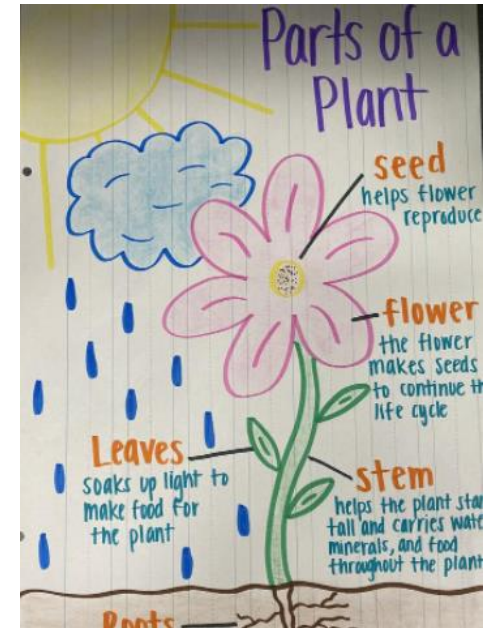 Parts of a
Plant
seed
helps flower
reproduce
flower
the flower
makes seeds
to continue th
life cycle
Leaves
soaks up light to
make food for
the plant
stem
helps the plant stan
tall and carries wate
minerals, and food
throughout the plant
Roots